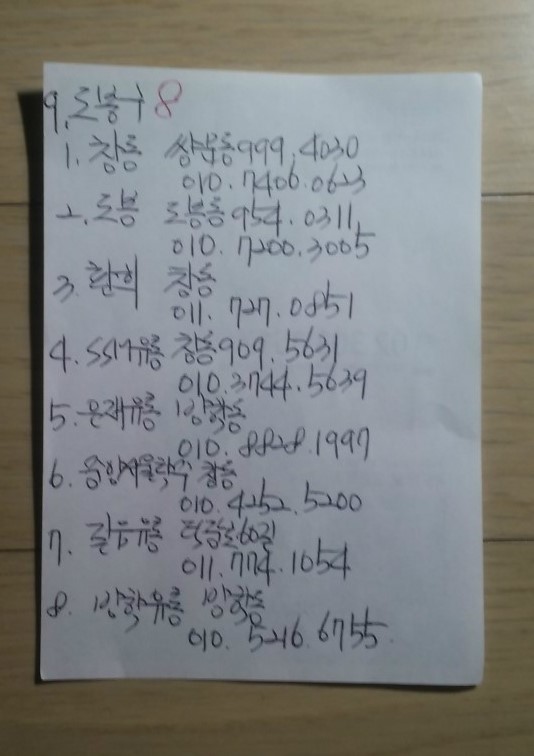 9. 도봉구 8
1. 창동 쌍문동 999.4030
010.7400.0623
2. 도봉 도봉동 954.0311
010.7200.3005
3. 환희 창동
011.727.0851
4. SSM유통 창동 909.5631
010.3744.5639
5. 은재유통 방학동
010.8828.1997
6. 창동
010.4252.5200
7. 유통 60길
011.774.1054
8. 방학유통 방학동
010.5216.6755